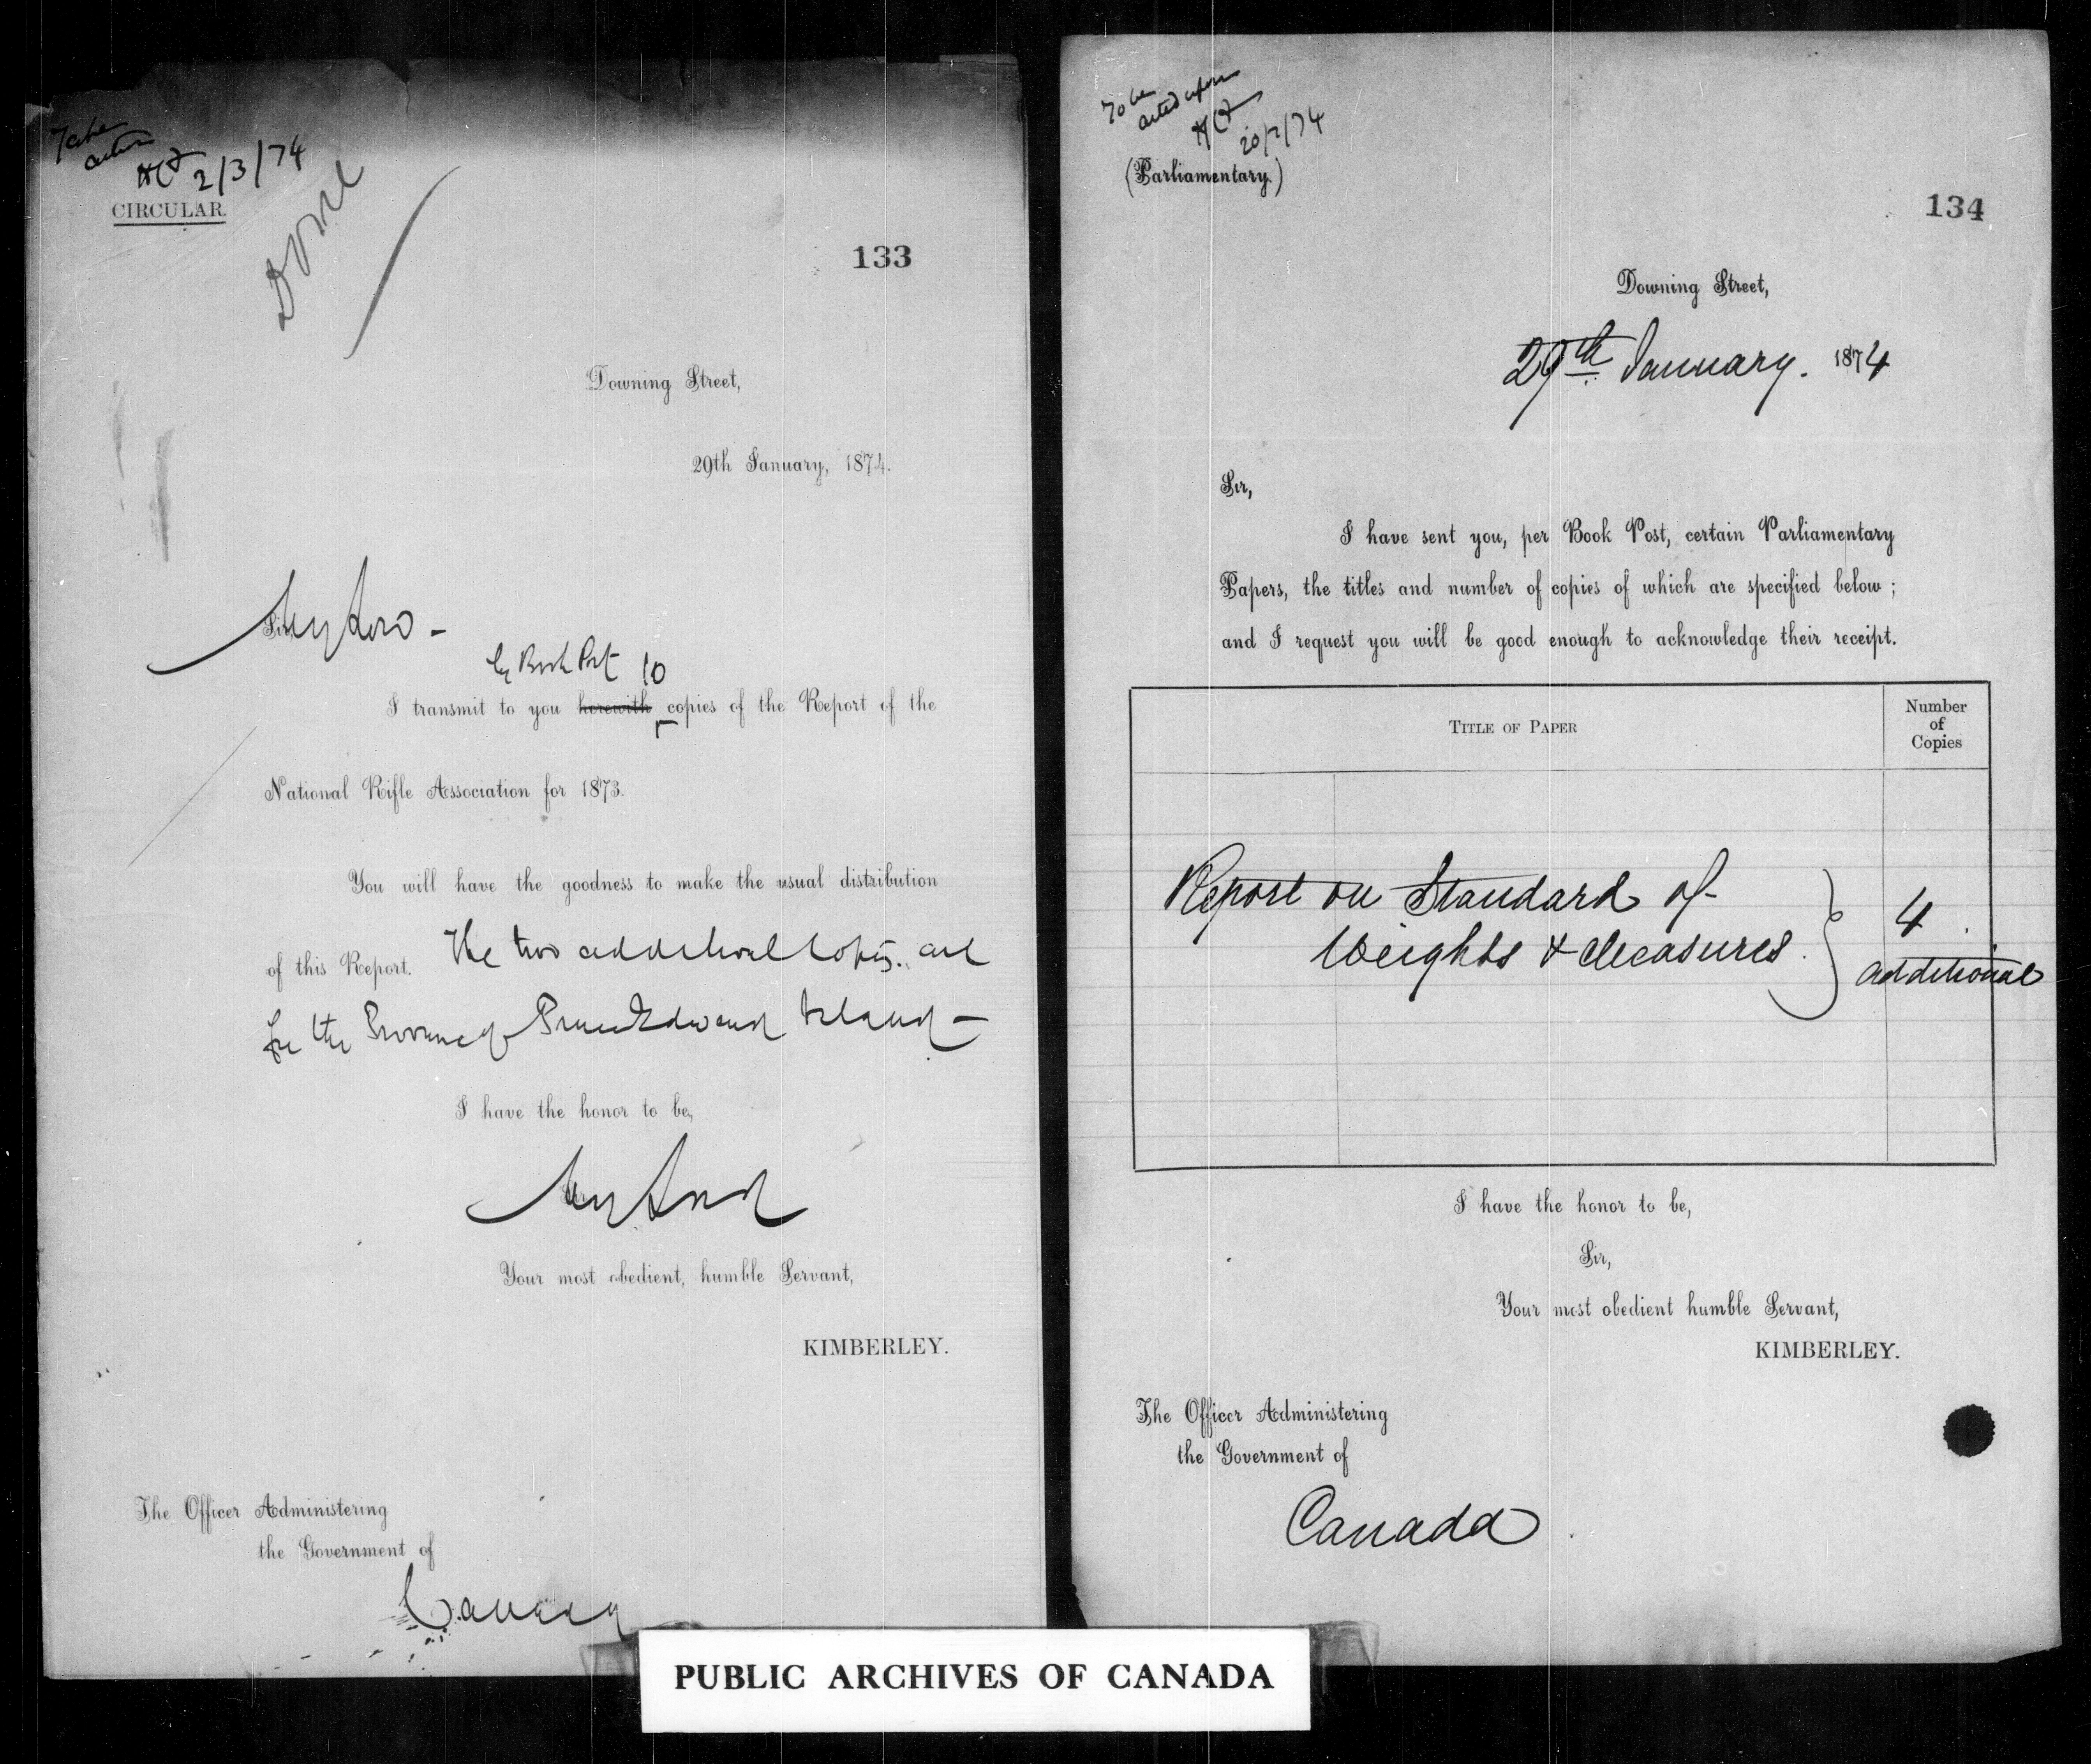 To be
acted
HCF 2/3/74
CIRCULAR.
Done
133
Downing Street,
29th January, 1874.
My Lord –
by Book Post 10
I transmit to you herewith copies of the Report of the
National Rifle Association for 1873.
You will have the goodness to make the usual distribution
of this Report. The two additional copies are
for the Province of Prince Edward Island –
I have the honor to be,
My Lord
Your most obedient, humble Servant,
KIMBERLEY.
The Officer Administering
the Government of
Canada
To be
acted upon
HCF
20/2/74
(Parliamentary.)
134
Downing Street,
29th January. 1874
Sir,
I have sent you, per Book Post, certain Parliamentary
Papers, the titles and number of copies of which are specified below;
and I request you will be good enough to acknowledge their receipt.
TITLE OF PAPER
Number
of
Copies
Report on Standard of
Weights & Measures.
4
additional
I have the honor to be,
Sir,
Your most obedient humble Servant,
KIMBERLEY.
The Officer Administering
the Government of
Canada.
PUBLIC ARCHIVES OF CANADA